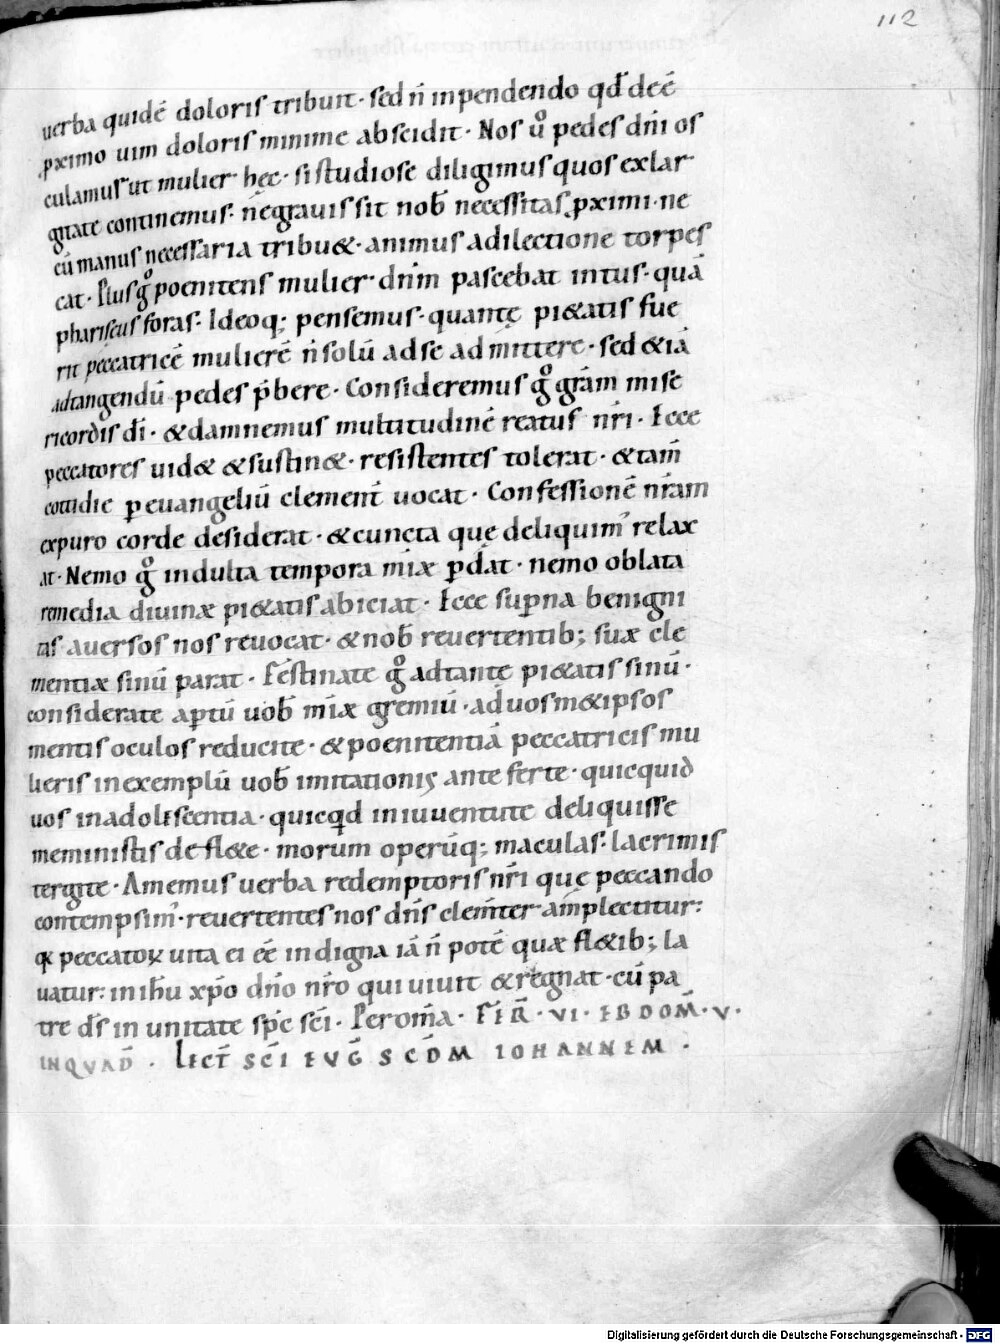 112
uerba quidē doloris tribuit · sed n̄ inpendendo qđ deē
ꝓximo uim doloris minime abscidit · Nos ů pedes dn̄i os
culamus ut mulier hęc · si studiose diligimus quos ex lar
gitate continemus · ne grauis sit nob̄ necessitas ꝓximi · ne
cū manus necessaria tribu& · animus a dilectione torpes
cat · Plus g̊ poenitens mulier dn̄m pascebat intus · quā
phariseus foras · Ideoq; pensemus · quantę pi&atis fue
rit peccatricē mulierē n̄ solū ad se admittere · sed &iā
ad tangendū pedes p̄bere · Consideremus g̊ gr̄am mise
ricordis dī · & damnemus multitudinē reatus nr̄i · Ecce
peccatores uid& & sustin& · resistentes tolerat · & tam̄
cottidie ꝑ euangeliū clement̄ uocat · Confessionē nr̄am
ex puro corde desiderat · & cuncta quę deliquim᾿ relax
at · Nemo g̊ indulta tempora mīæ ꝑdat · nemo oblata
remedia diuinæ pi&atis abiciat · Ecce suꝑna benigni
tas auersos nos reuocat · & nob̄ reuertentib; suæ cle
mentiæ sinū parat · Festinate g̊ ad tantę pi&atis sinū ·
considerate aꝑtū uob̄ mīæ gremiū · ad uosm&ipsos
mentis oculos reducite · & poenitentiā peccatricis mu
lieris in exemplū uob̄ imitationis ante ferte · quicquid
uos in adolescentia · quicq̄d in iuuentute deliquisse
meministis defl&e · morum operūq; maculas · lacrimis
tergite · Amemus uerba redemptoris nr̄i quę peccando
contempsim᾿ · reuertentes nos dn̄s clem̄ter amplectitur:
qꝫ peccatoꝝ uita ei eē indigna iā n̄ potē quæ fl&ib; la
uatur: in ihū xp̄o dn̄o nr̄o qui uiuit & regnat · cū pa
tre d̄s in unitate sp̄c scī · Per om̄a · FER̄ · VI · EBDOM̄ · V ·
IN QVAD̄ · LECT̄ SCĪ EVḠ SCD̄M IOHANNEM ·
Digitalisierung gefördert durch die Deutsche Forschungsgemeinschaft - DFG